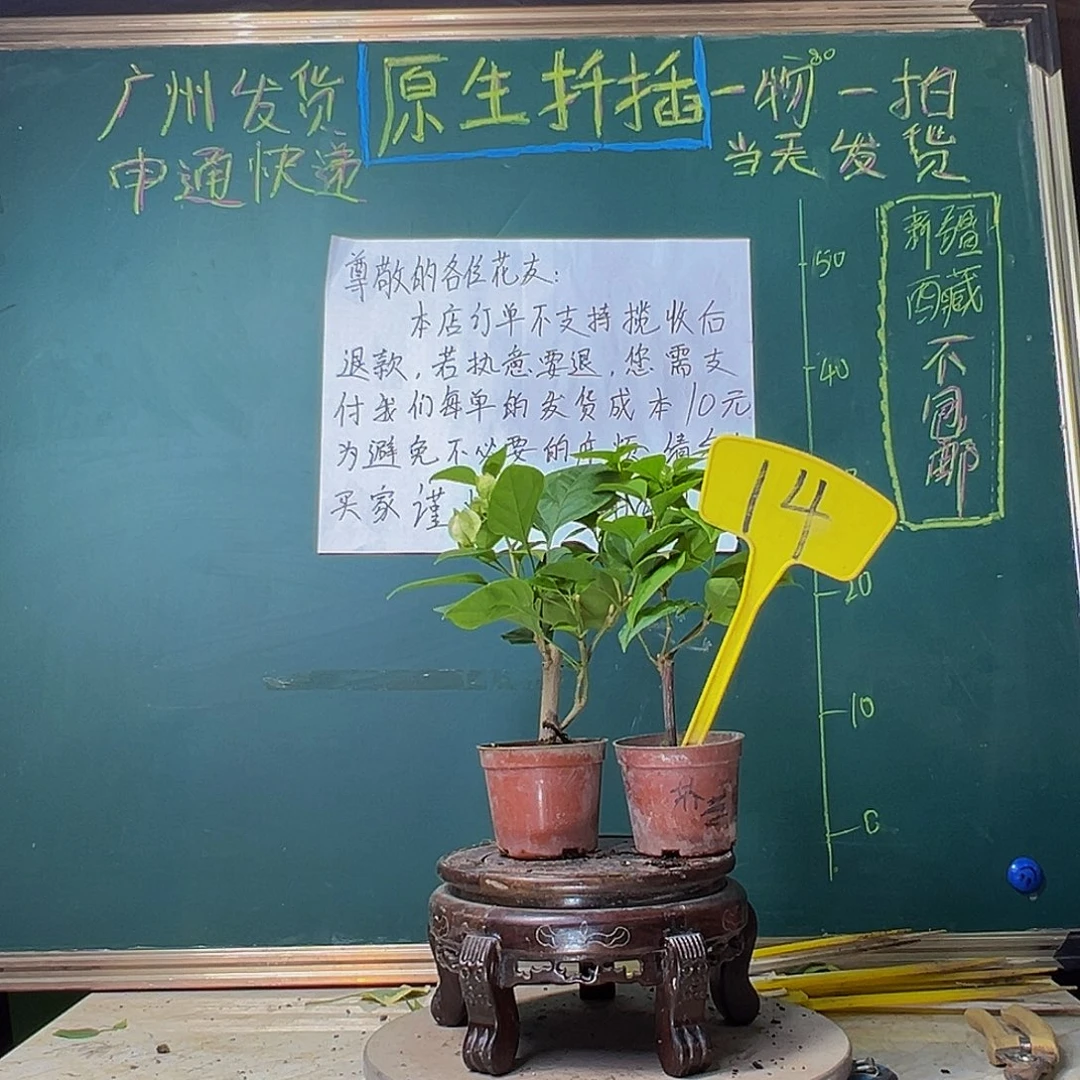 广州发货
申通快递
原生扦插
一物一拍
当天发货
新疆
西藏
不
包
邮
尊敬的各位花友:
本店订单不支持揽收后
退款,若执意要退,您需支
付我们每单的发货成本10元
为避免不必要的麻烦,请各
买家谨
14
50
40
20
10
0